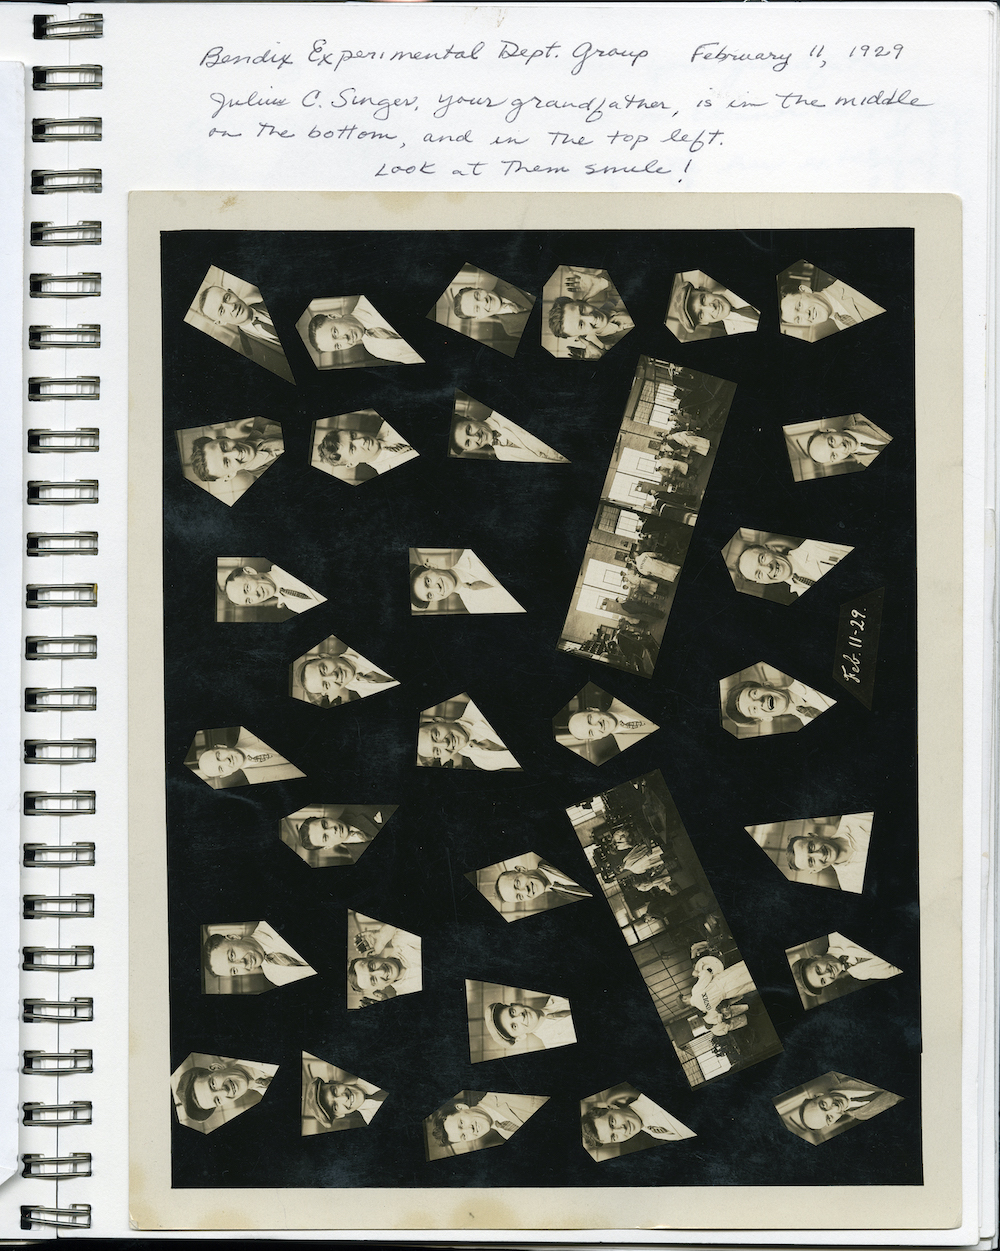 Bendix Experimental Dept. Group February 11, 1929
Julius C. Singer, your grandfather, is in the middle
on the bottom, and in the top left.
Look at them smile!
Feb. 11-29.